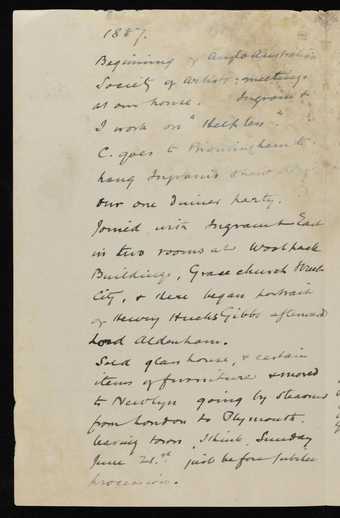 1887.
Beginning of Anglo Australian
Society of Artists: meetings
at our house. Ingram &
I work on "Helpless".
C. goes to Birmingham to
hang Ingram's show
our one dinner party.
Joined with Ingram & East
in two rooms at Woolpack
Buildings, Gracechurch Street
City, & there began portrait
of Henry Hucks Gibbs afterward
Lord Aldenham.
Sold glass house, & certain
items of furniture & moved
to Newlyn going by steamer
from London to Plymouth.
leaving town, I think, Sunday
June just before Jubilee
procession.